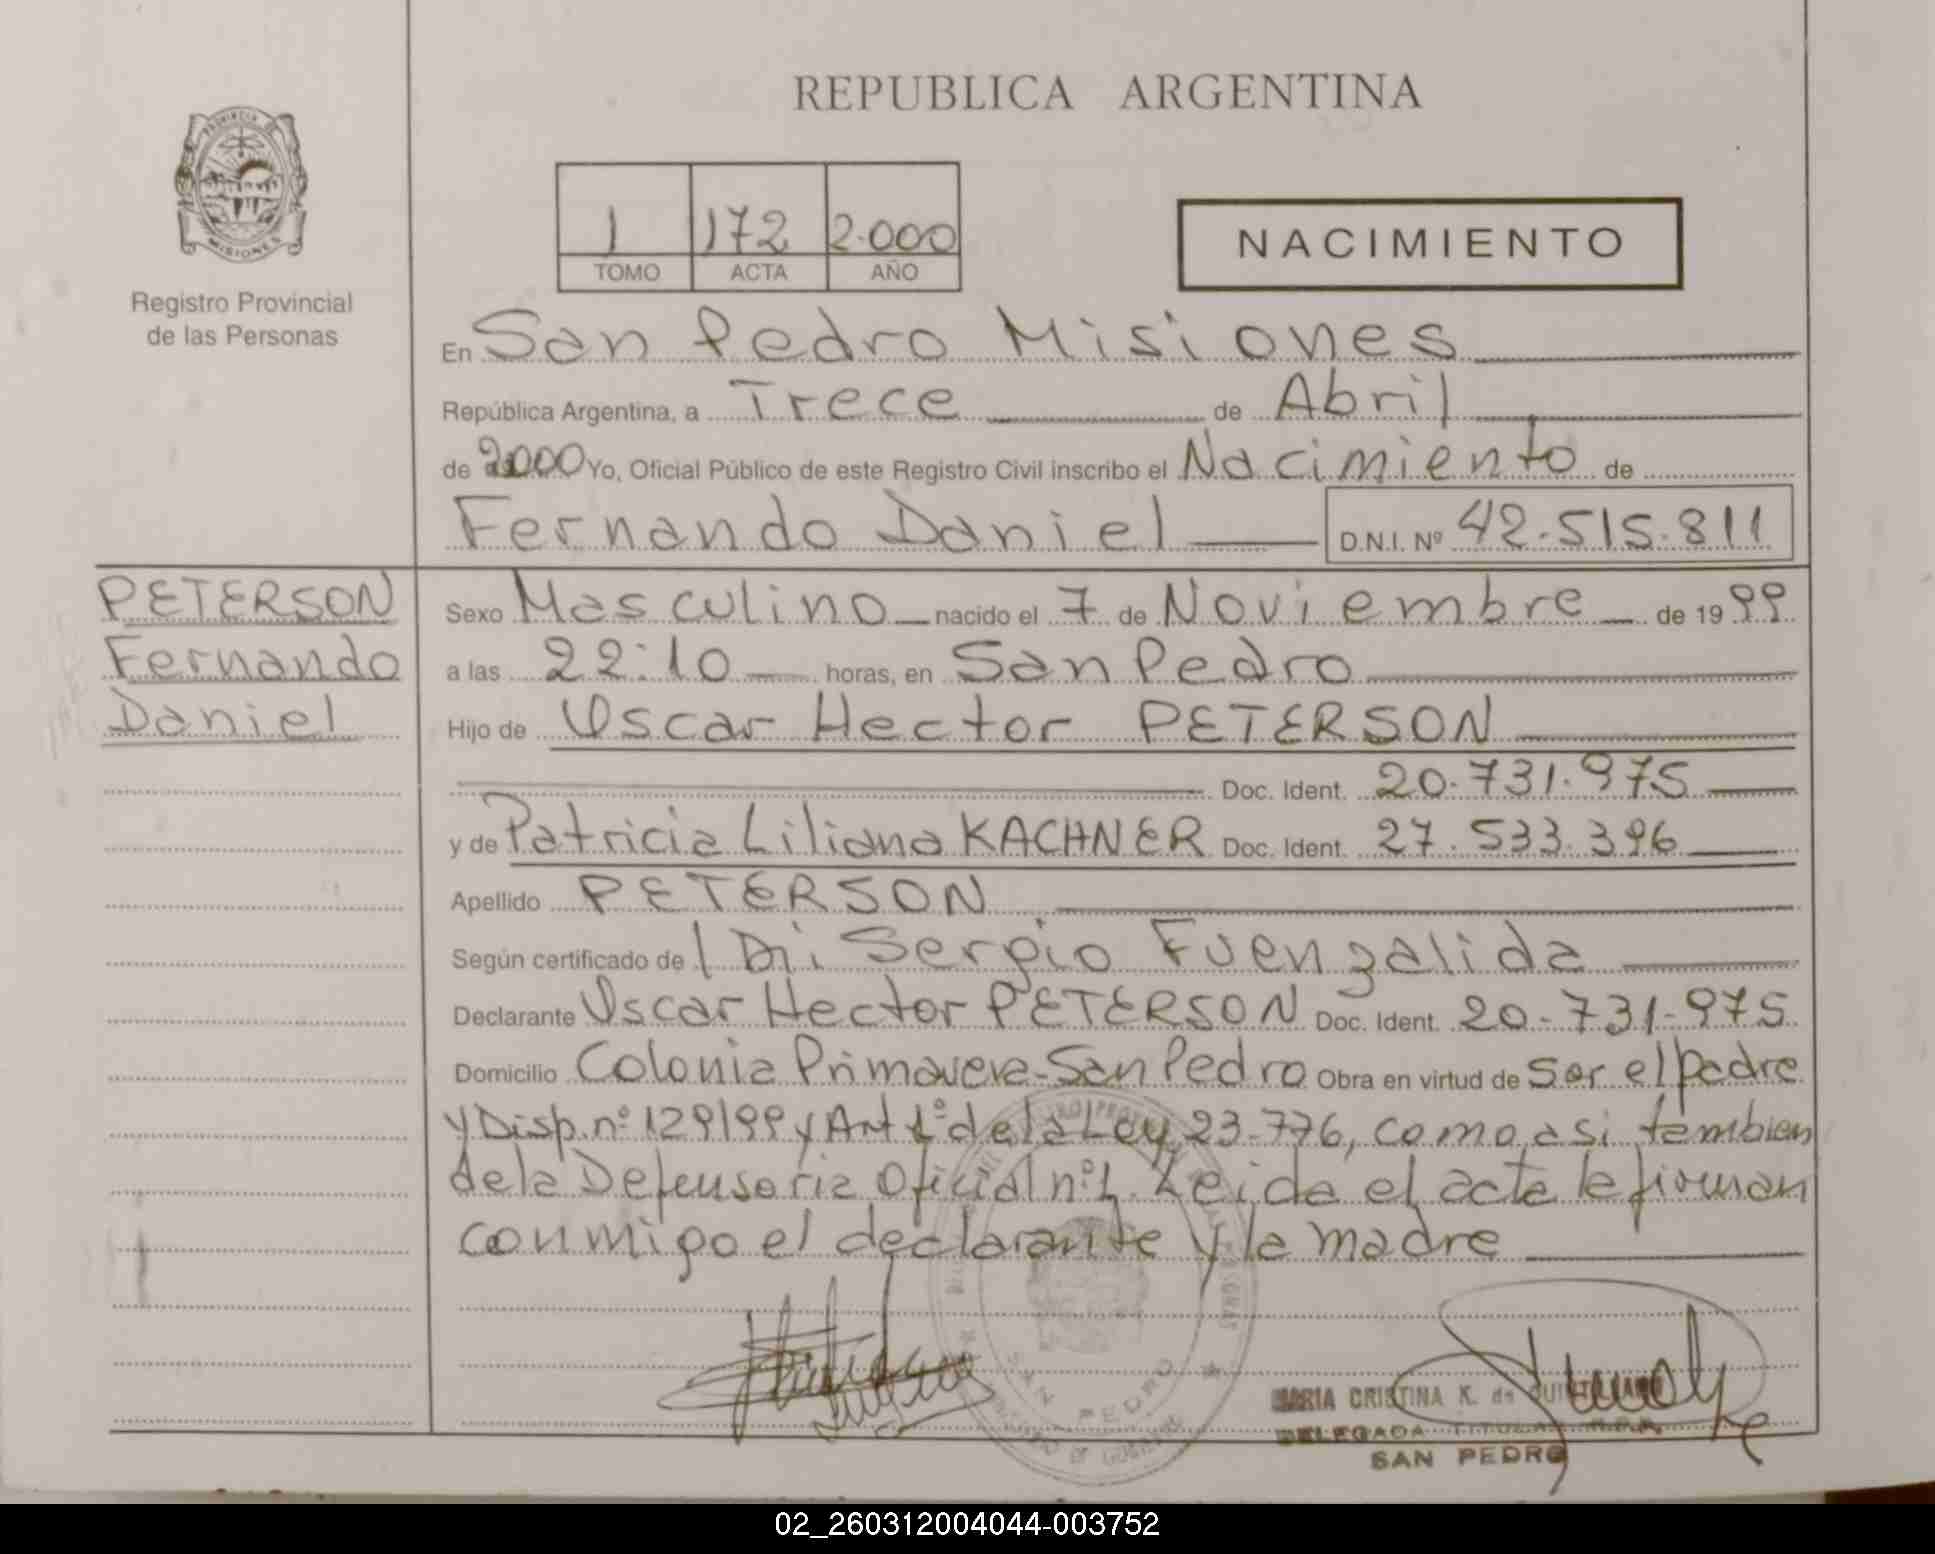 REPUBLICA ARGENTINA
PROVINCIA DE
MISIONES
Registro Provincial
de las Personas
1 172 2.000
TOMO ACTA AÑO
NACIMIENTO
En San Pedro Misiones
República Argentina, a Trece de Abril
de 2000 Yo, Oficial Público de este Registro Civil inscribo el Nacimiento de
Fernando Daniel D.N.I. Nº 42.515.811
PETERSON
Fernando
Daniel
Sexo Masculino nacido el 7 de Noviembre de 1999
a las 22:10 horas, en San Pedro
Hijo de Oscar Hector PETERSON
Doc. Ident. 20.731.975
y de Patricia Liliana KACHNER Doc. Ident. 27.533.396
Apellido PETERSON
Según certificado de Sergio Fuenzalida
Declarante Oscar Hector PETERSON Doc. Ident. 20-731-975
Domicilio Colonia Primavera-San Pedro Obra en virtud de Ser el Padre
y Disp. nº 129/99 y Art 1º de la Ley 23.776, como asi tambien
de la Defensoria Oficial nº1. Leida el acta la firman
conmigo el declarante y la madre
SAN PEDRO
MARIA CRISTINA K. de
DELEGADA TITULAR R.P.P.
SAN PEDRO
02_260312004044-003752